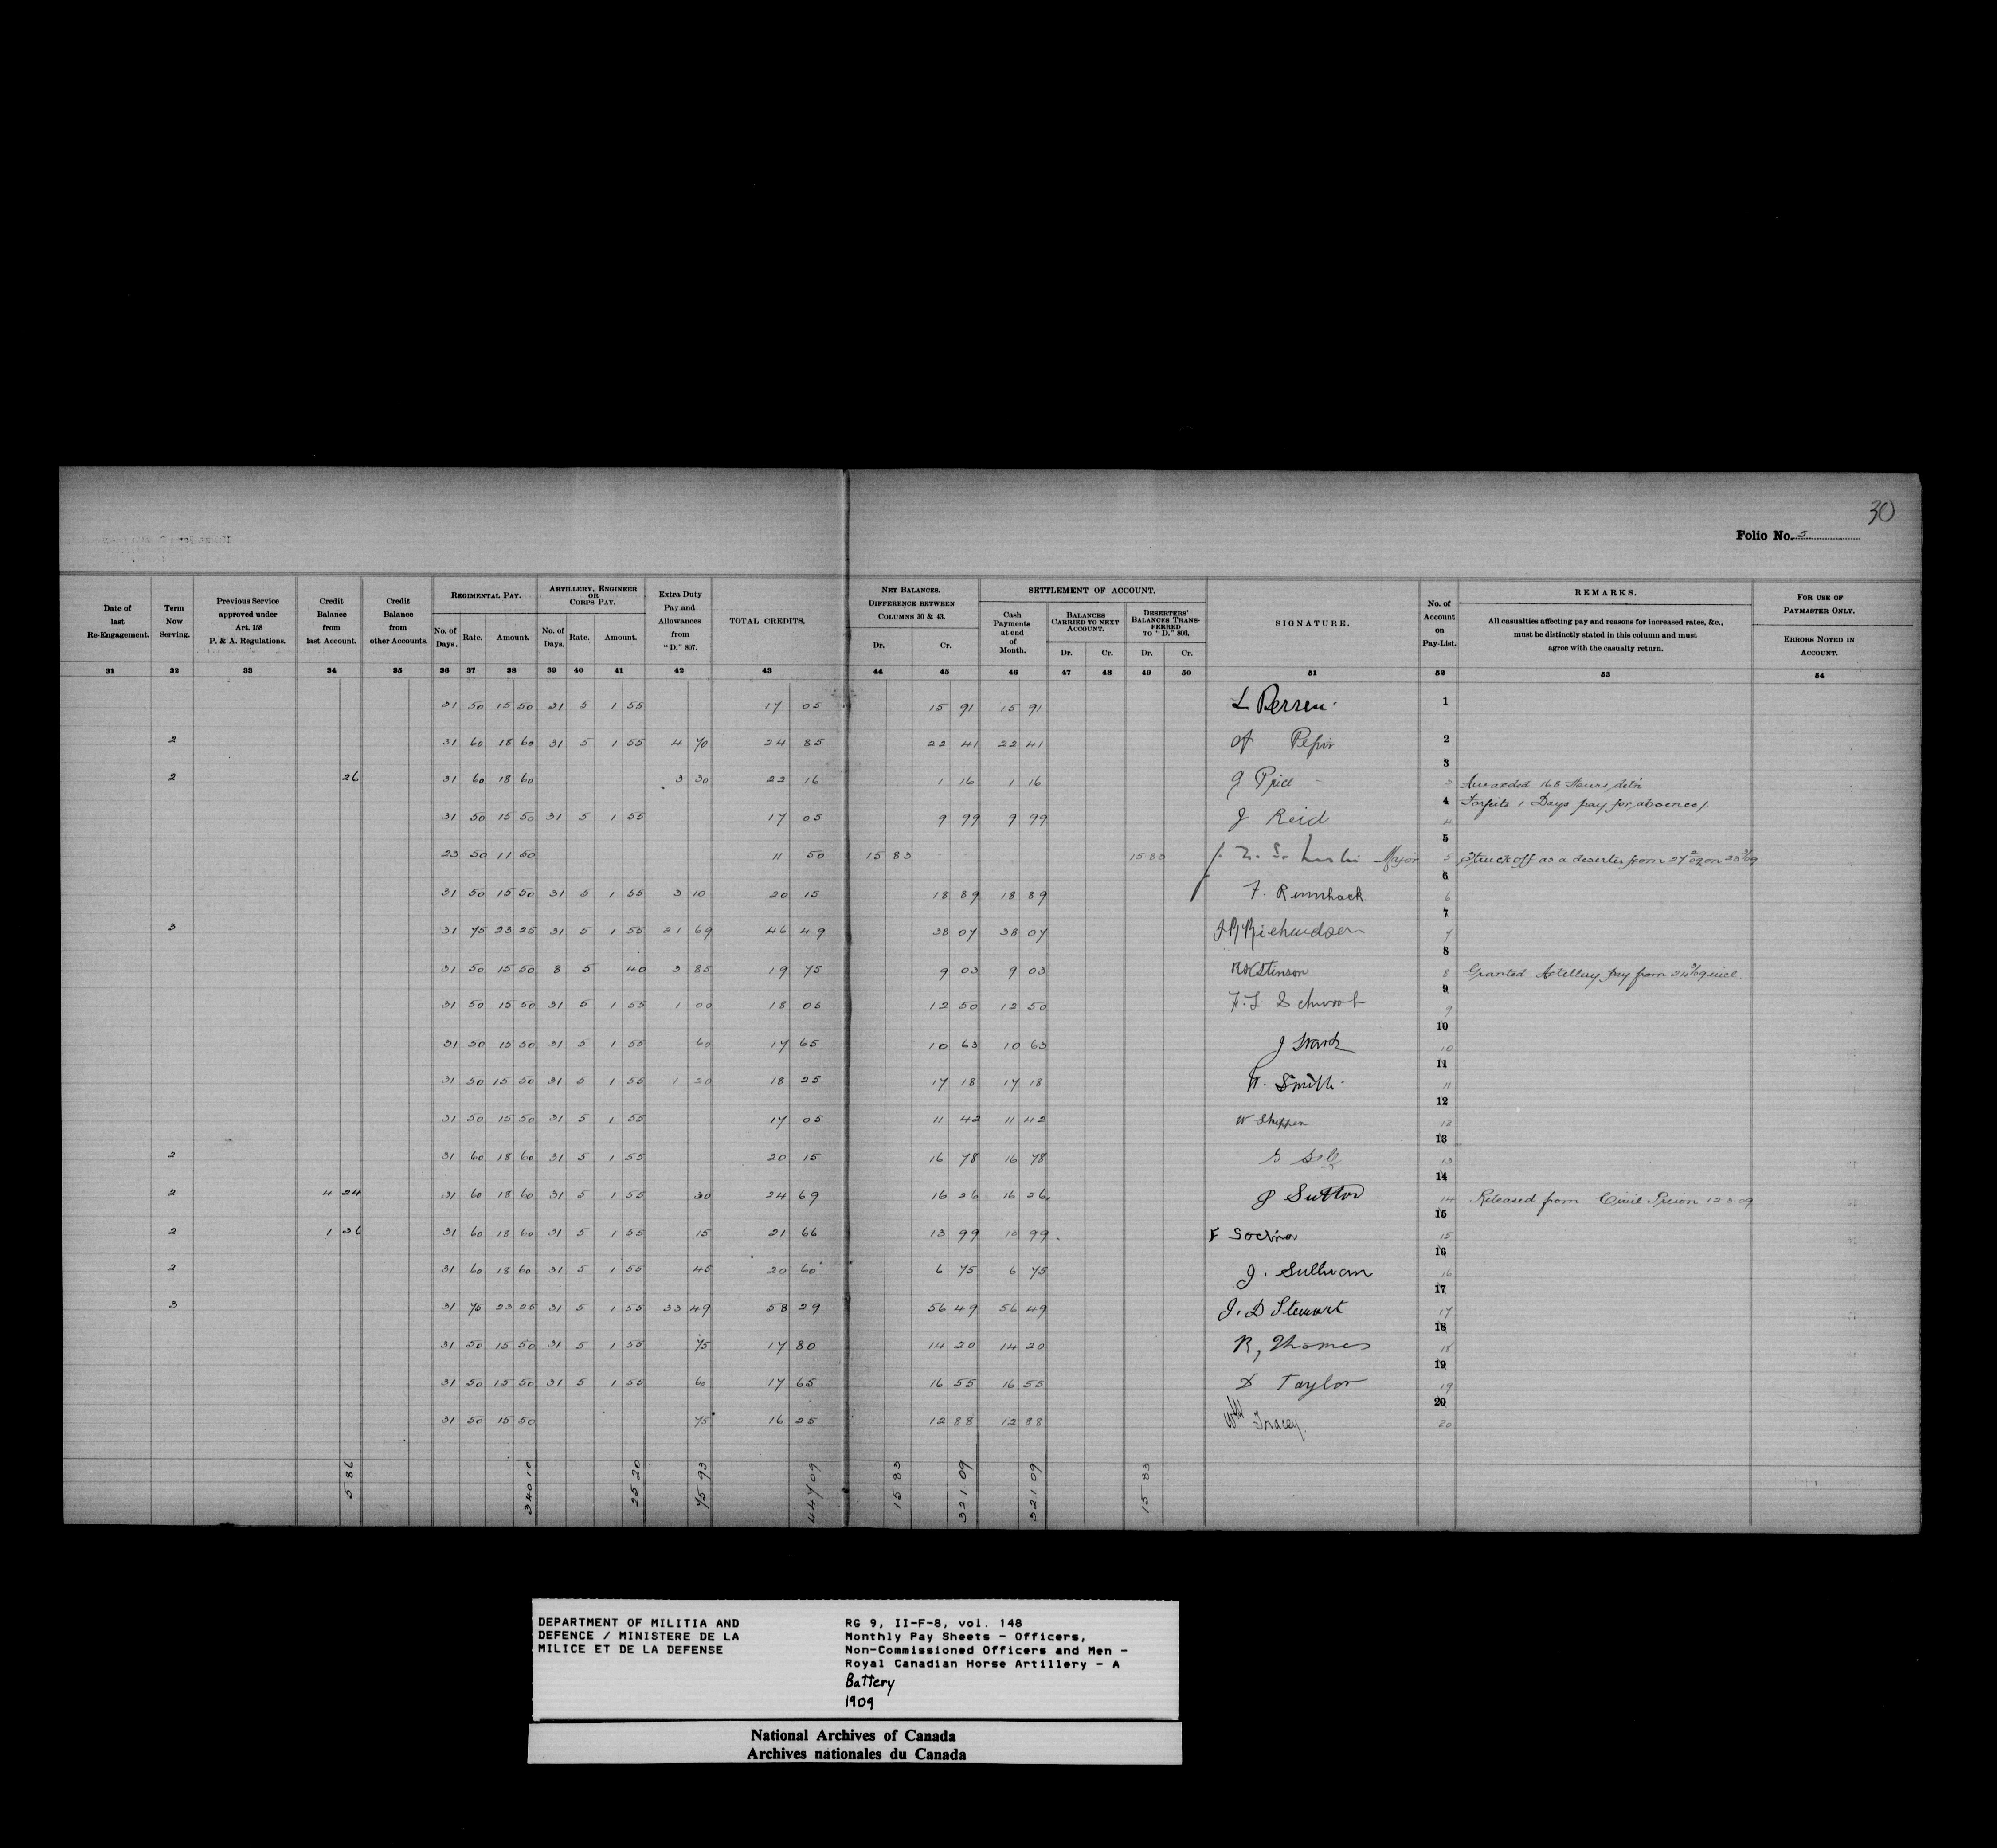 30
Folio No. 5
Date of last Re-Engagement.
Term Now Serving.
Previous Service approved under Art. 158 P. & A. Regulations.
Credit Balance from last Account.
Credit Balance from other Accounts.
REGIMENTAL PAY.
No. of Days. Rate. Amount.
ARTILLERY, ENGINEER OR CORPS PAY.
No. of Days. Rate. Amount.
Extra Duty Pay and Allowances from "D." 807.
TOTAL CREDITS.
NET BALANCES. DIFFERENCE BETWEEN COLUMNS 30 & 43.
Dr. Cr.
SETTLEMENT OF ACCOUNT.
Cash Payments at end of Month.
BALANCES CARRIED TO NEXT ACCOUNT.
Dr. Cr.
DESERTERS' BALANCES TRANSFERRED TO "D." 806.
Dr. Cr.
SIGNATURE.
No. of Account on Pay-List.
REMARKS.
All casualties affecting pay and reasons for increased rates, &c., must be distinctly stated in this column and must agree with the casualty return.
FOR USE OF PAYMASTER ONLY.
ERRORS NOTED IN ACCOUNT.
31 32 33 34 35 36 37 38 39 40 41 42 43 44 45 46 47 48 49 50 51 52 53 54
31 50 15 50 31 5 1 55 17 05 15 91 15 91 L Perren 1
2 31 60 18 60 31 5 1 55 4 70 24 85 22 41 22 41 Pepin 2
2 26 31 60 18 60 3 30 22 16 1 16 1 16 G Price 3 Awarded 168 Hours detn
Forfeits 1 Days pay for absence
31 50 15 50 31 5 1 55 17 05 9 99 9 99 J Reid 4
23 50 11 50 11 50 15 83 15 83 Major 5 Struck off as a deserter from on
31 50 15 50 31 5 1 55 3 10 20 15 18 89 18 89 F. 6
3 31 75 23 25 31 5 1 55 21 69 46 49 38 07 38 07 Richardson 7
31 50 15 50 8 5 40 3 85 19 75 9 03 9 03 Stinson 8 Granted Artillery pay from 24 3/09 incl
31 50 15 50 31 5 1 55 1 00 18 05 12 50 12 50 9
31 50 15 50 31 5 1 55 60 17 65 10 63 10 63 J 10
31 50 15 50 31 5 1 55 1 20 18 25 17 18 17 18 Smith 11
31 50 15 50 31 5 1 55 17 05 11 42 11 42 W 12
2 31 60 18 60 31 5 1 55 20 15 16 78 16 78 13
2 4 24 31 60 18 60 31 5 1 55 30 24 69 16 26 16 26 Sutton 14 Released from Civil Prison 12 3 09
2 1 36 31 60 18 60 31 5 1 55 15 21 66 13 99 13 99 F 15
2 31 60 18 60 31 5 1 55 45 20 60 6 75 6 75 J. Sullivan 16
3 31 75 23 25 31 5 1 55 33 49 58 29 56 49 56 49 J. D Stewart 17
31 50 15 50 31 5 1 55 75 17 80 14 20 14 20 R, Thomas 18
31 50 15 50 31 5 1 55 60 17 65 16 55 16 55 D Taylor 19
31 50 15 50 75 16 25 12 88 12 88 Wm Tracey. 20
5 86 340 10 25 20 75 93 447 09 15 83 321 09 321 09 15 83
DEPARTMENT OF MILITIA AND
DEFENCE / MINISTERE DE LA
MILICE ET DE LA DEFENSE
RG 9, II-F-8, vol. 148
Monthly Pay Sheets - Officers,
Non-Commissioned Officers and Men -
Royal Canadian Horse Artillery - A
Battery
1909
National Archives of Canada
Archives nationales du Canada